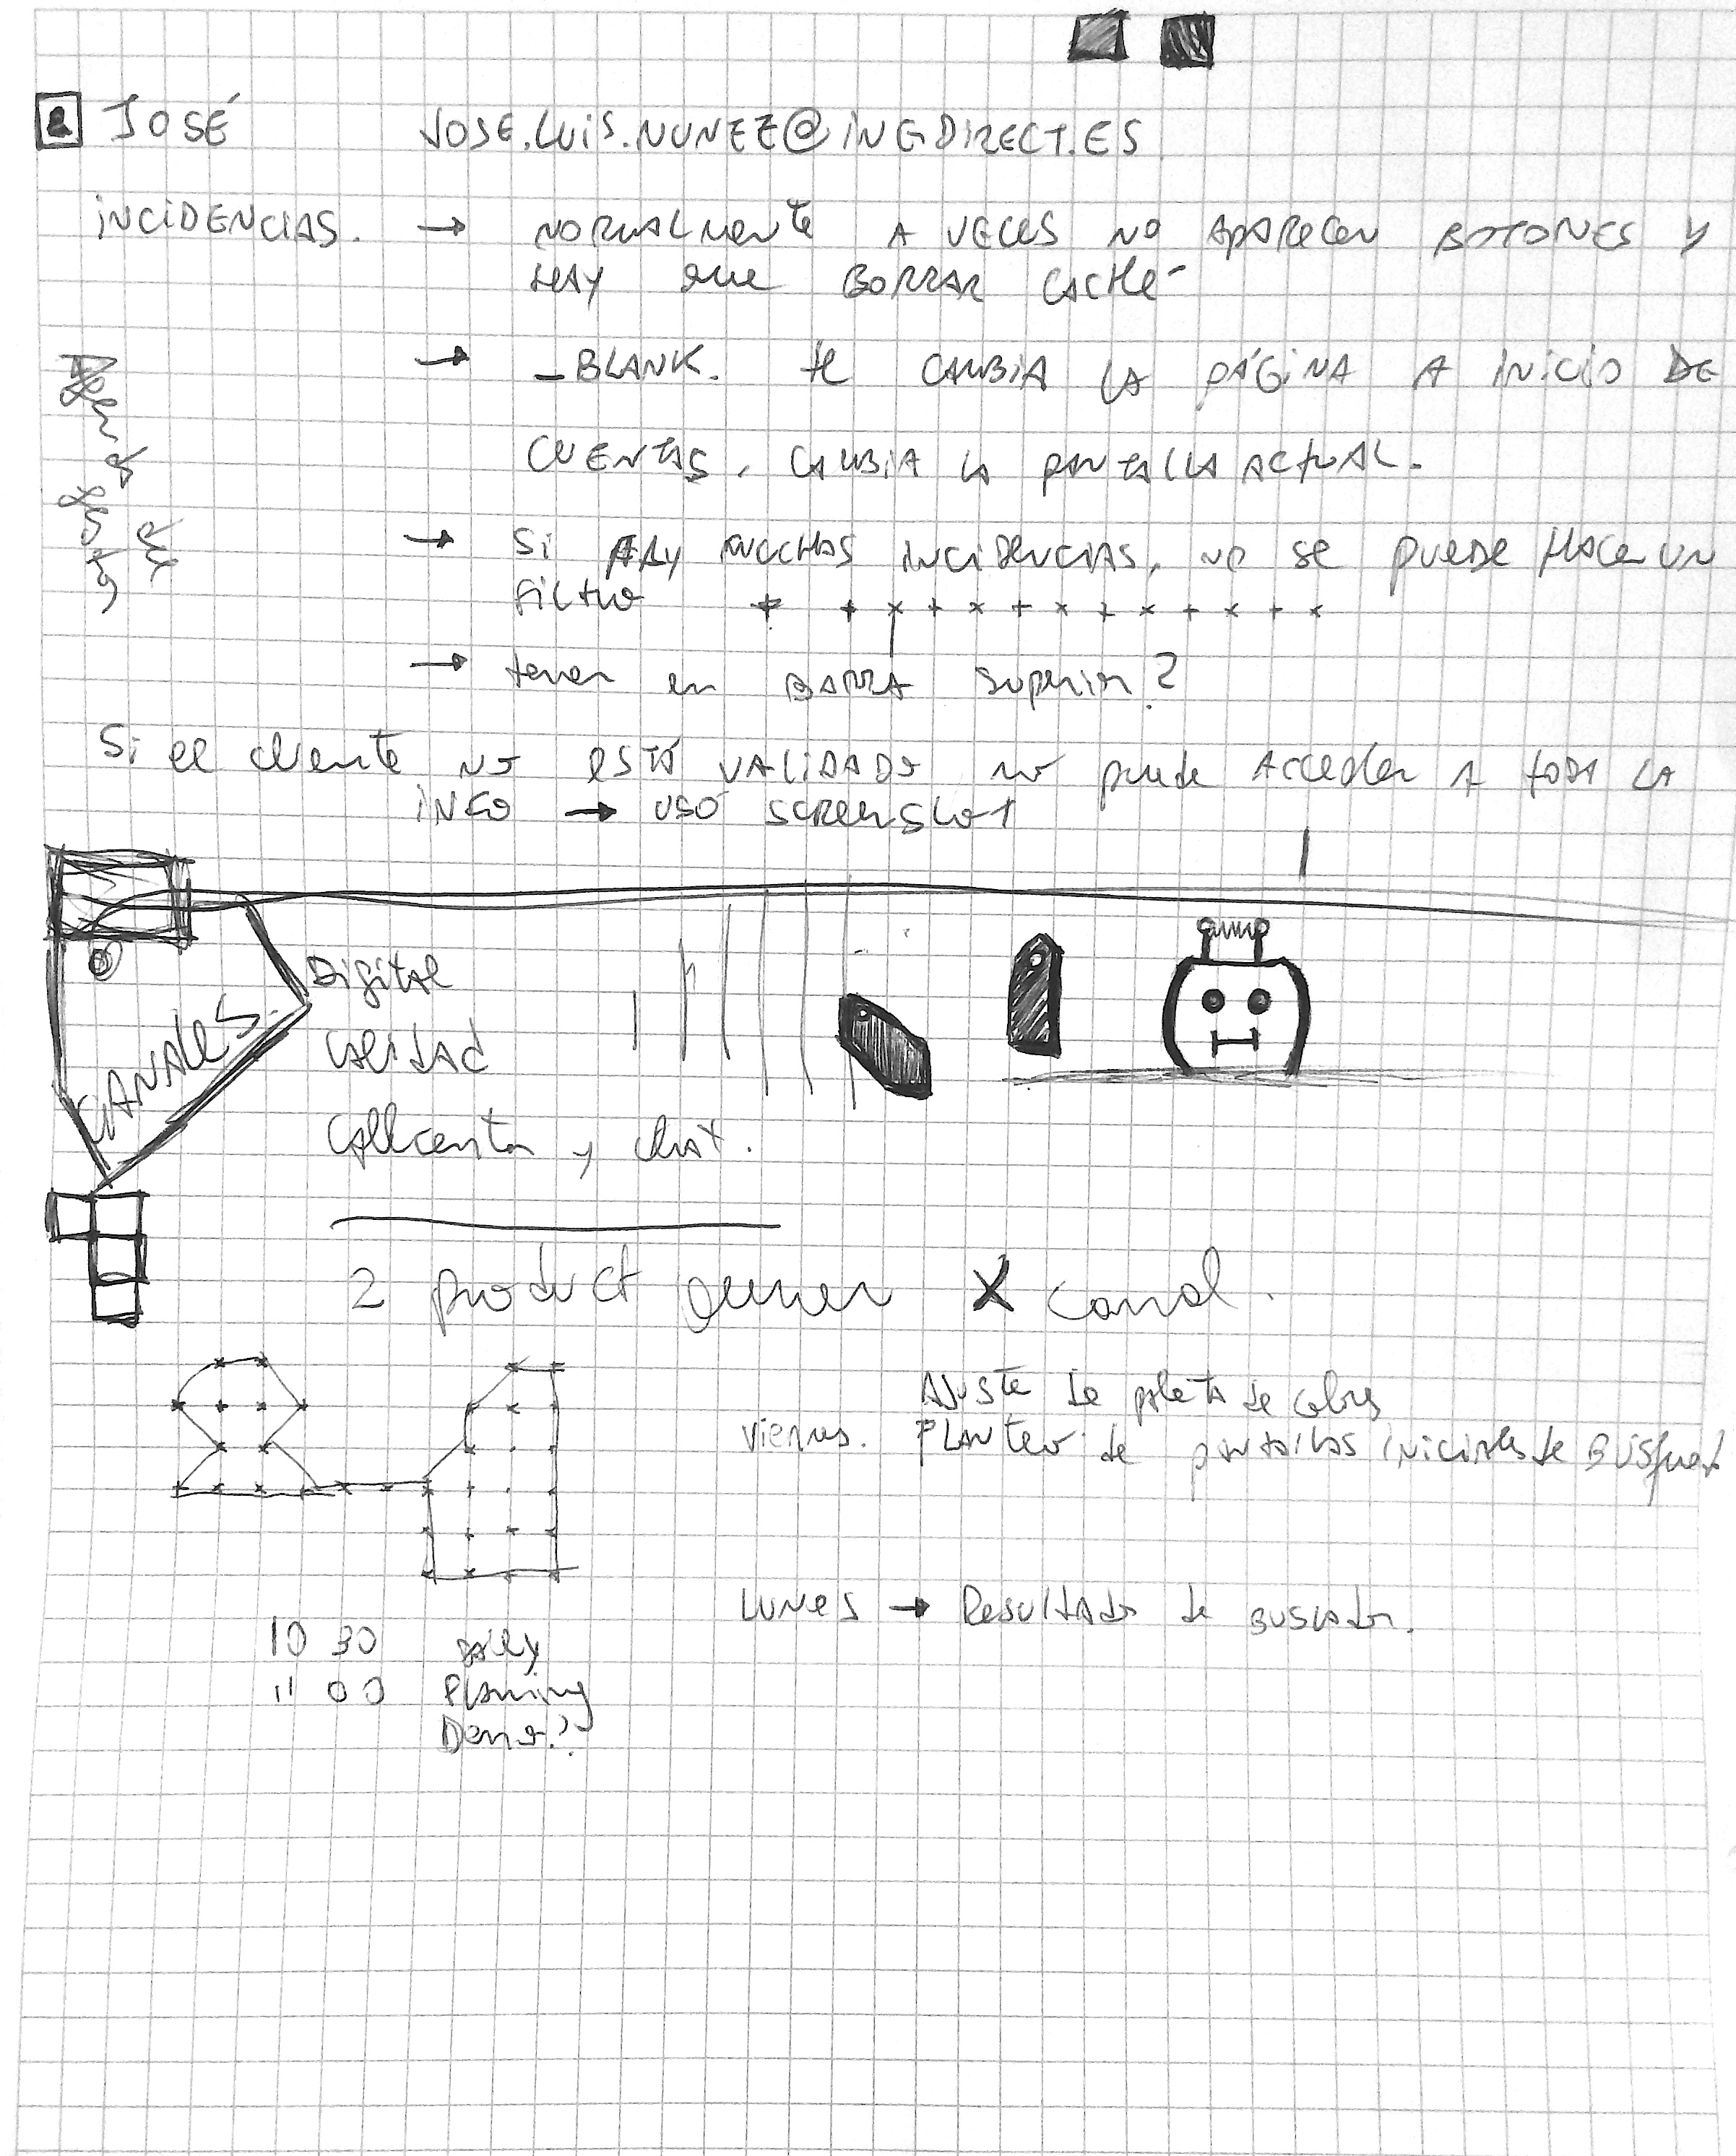 JOSÉ JOSE.LUIS.NUNEZ@INGDIRECT.ES
INCIDENCIAS. → NORMALMENTE A VECES NO APARECEN BOTONES Y
HAY QUE BORRAR CACHÉ
→ _BLANK. te CAMBIA LA PÁGINA A INICIO DE
CUENTAS. CAMBIA LA PANTALLA ACTUAL.
→ Si HAY MUCHAS INCIDENCIAS, NO SE PUEDE HACER UN
FILTRO
→ tener en BARRA superior?
Si el cliente no está VALIDADO no puede Acceder A TODA LA
INFO → USO SCREENSHOT
CANALES.
Digital
CALIDAD
Callcenter y chat.
2 product owner X canal.
AJUSTE de paleta de colores
Viernes. PLANTEO de pantallas iniciales de
LUNES → Resultado de BUSCADOR.
10 30 DAILY
11 00 Planning
Demo??